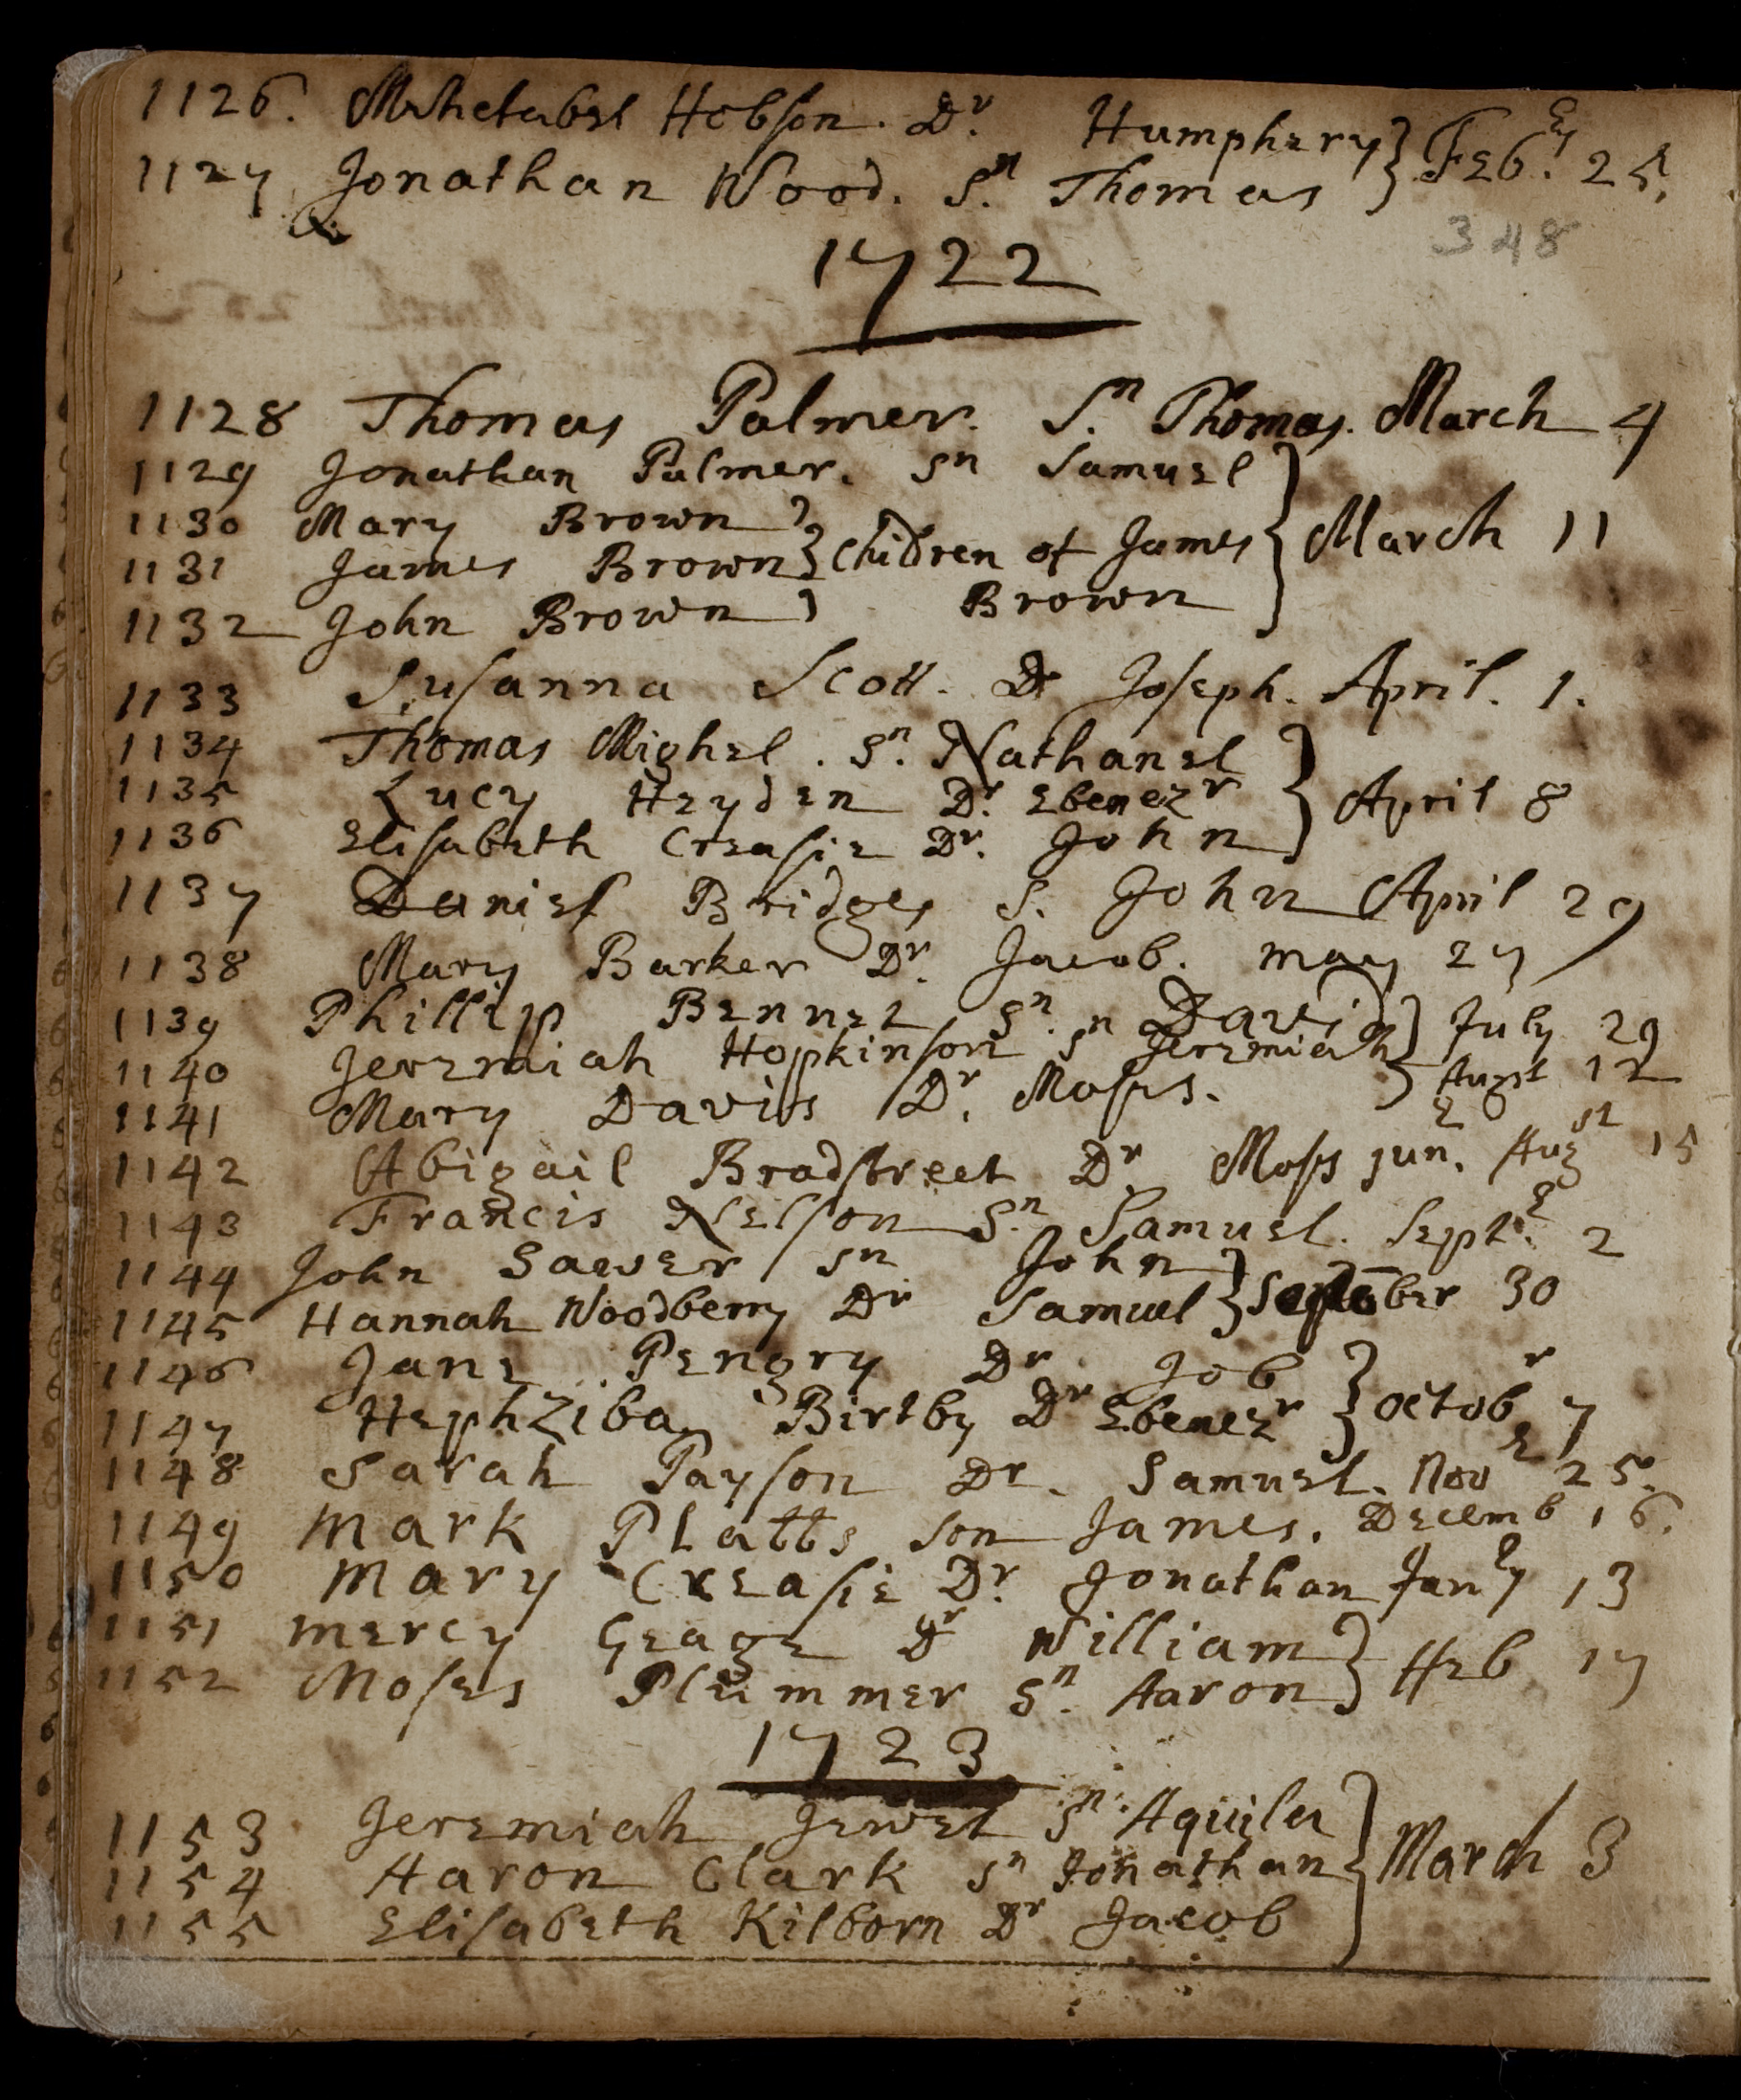 1126. Mehetabel Hobson. Dr. Humphery } Feb.ry 25.
1127 Jonathan Wood. Sn. Thomas
348
1722
1128 Thomas Palmer. Sn. Thomas. March 4
1129 Jonathan Palmer. Sn Samuel
1130 Mary Brown
1131 James Brown } Children of James } March 11
1132 John Brown Brown
1133 Susanna Scott. Dr Joseph. April. 1.
1134 Thomas Mighel. Sn. Nathanel
1135 Lucy Heyden Dr. Ebenezr } April 8
1136 Elisabeth Creasie Dr. John
1137 Daniel Bridges S. John April 29
1138 Mary Barker Dr. Jacob. may 27
1139 Phillip Bennet Sn. David } July 29
1140 Jeremiah Hopkinson sn Jeremiah
1141 Mary Davis Dr. Moses. } Augst 12
1142 Abigail Bradstreet Dr. Moses jun. Augst 15
1143 Francis Nelson Sn. Samuel. Septe. 2
1144 John Sawer Sn John
1145 Hannah Woodberry Dr Samuel } September 30
1146 Jane Pengry Dr. Job
1147 Hephziba Birtby Dr Ebenezr } Octobr 7
1148 Sarah Payson Dr. Samuel. Nove 25.
1149 Mark Platts son James. Decemb 16.
1150 Mary Creasie Dr. Jonathan Janry 13
1151 Mercy Geage Dr William
1152 Moses Plummer Sn. Aaron } Feb 17
1723
1153 Jeremiah Jewet Sn. Aquila
1154 Aaron Clark Sn Jonathan } March 3
1155 Elisabeth Kilborn Dr Jacob